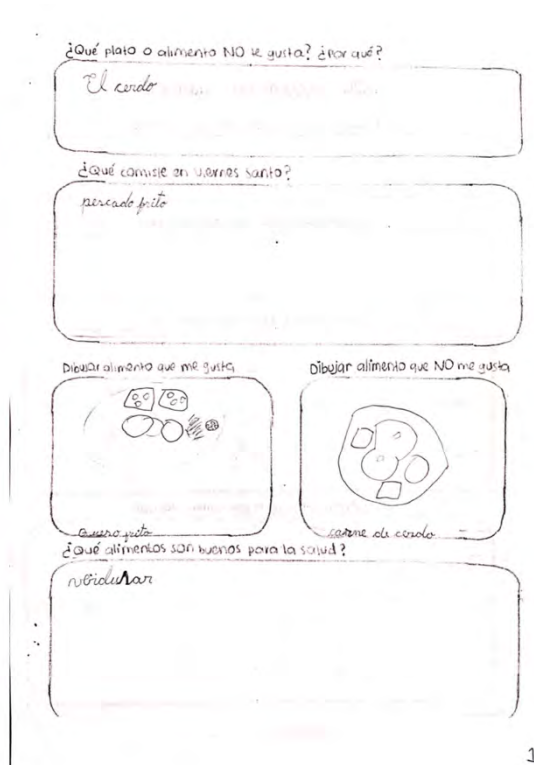 ¿Qué plato o alimento NO le gusta? ¿Por qué?
El cerdo
¿Qué comiste en viernes santo?
pescado frito
Dibujar alimento que me gusta
Dibujar alimento que NO me gusta
frito
carne de cerdo
¿Qué alimentos son buenos para la salud?
1